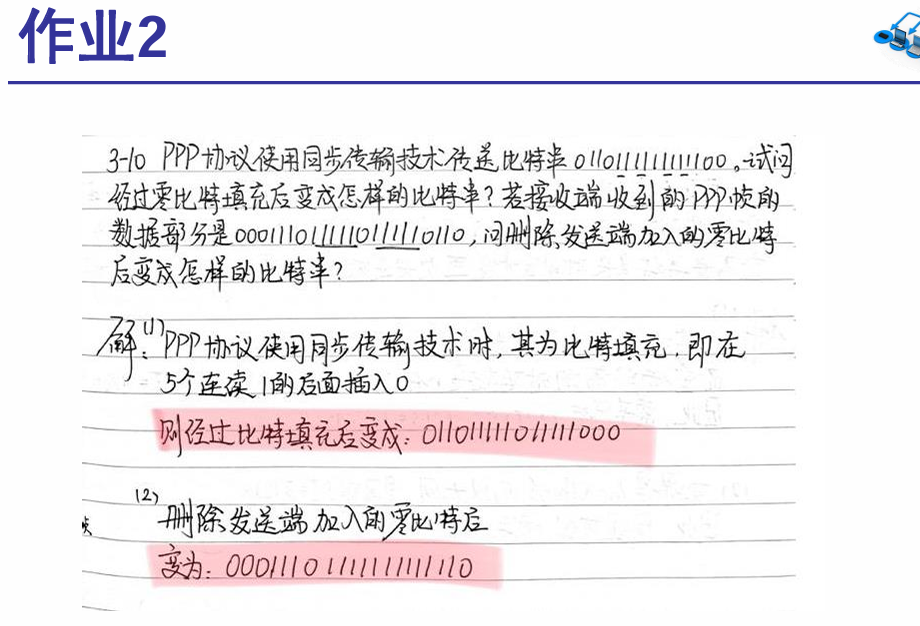 作业2
3-10 PPP协议使用同步传输技术传送比特串0110111111111100。试问
经过零比特填充后变成怎样的比特串?若接收端收到的PPP帧的
数据部分是0001110111110111110110,问删除发送端加入的零比特
后变成怎样的比特串?
解:(1) PPP协议使用同步传输技术时,其为比特填充,即在
5个连续1的后面插入0
则经过比特填充后变成:011011111011111000
(2) 删除发送端加入的零比特后
变为:00011101111111111110